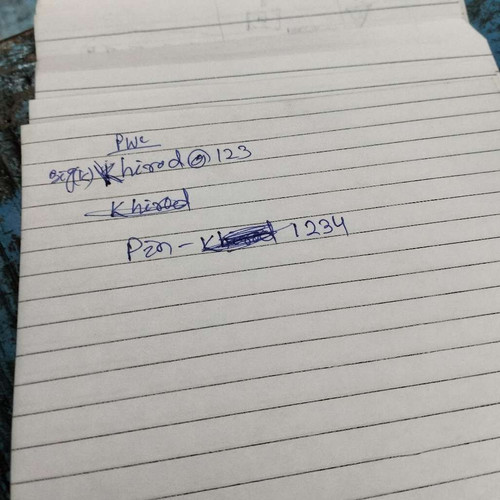 PWC
Khirod@123
Khirod
Pin - 1234